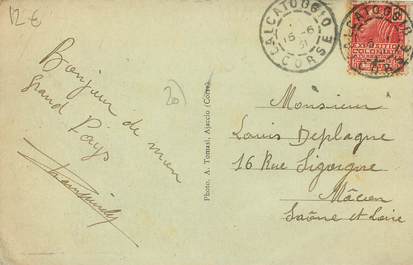 12 €
CALCATOGGIO
16-6
31
CORSE
CALCATOGGIO
CORSE
Bonjour de mon
grand Pays
20
Photo. A. Tomasi, Ajaccio (Corse)
Monsieur
Louis Deplagne
16 Rue Sigorgne
Mâcon
Saône et Loire